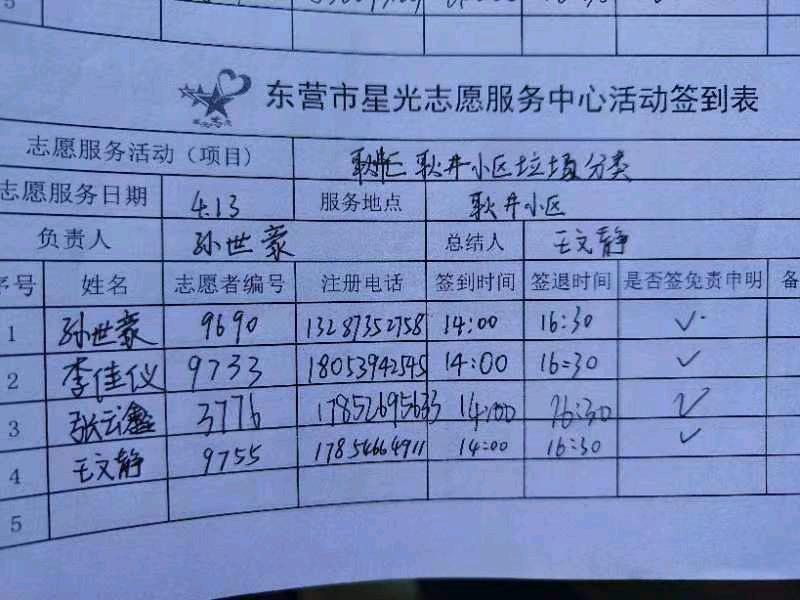 5
东营市星光志愿服务中心活动签到表
志愿服务活动（项目） 耿井小区垃圾分类
志愿服务日期 4.13 服务地点 耿井小区
负责人 孙世豪 总结人 王文静
序号 姓名 志愿者编号 注册电话 签到时间 签退时间 是否签免责申明 备
1 孙世豪 9690 13287352758 14:00 16:30 ✓
2 李佳仪 9733 18053942545 14:00 16:30 ✓
3 张云鑫 3776 17852695633 14:00 16:30 ✓
4 王文静 9755 17854664911 14:00 16:30 ✓
5